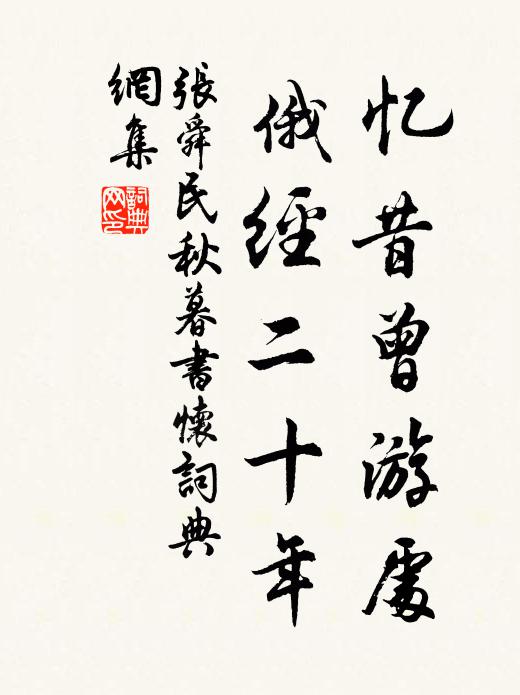 忆昔曾游處
俄經二十年
張舜民秋暮書懷詞典
網集
詞典
网印